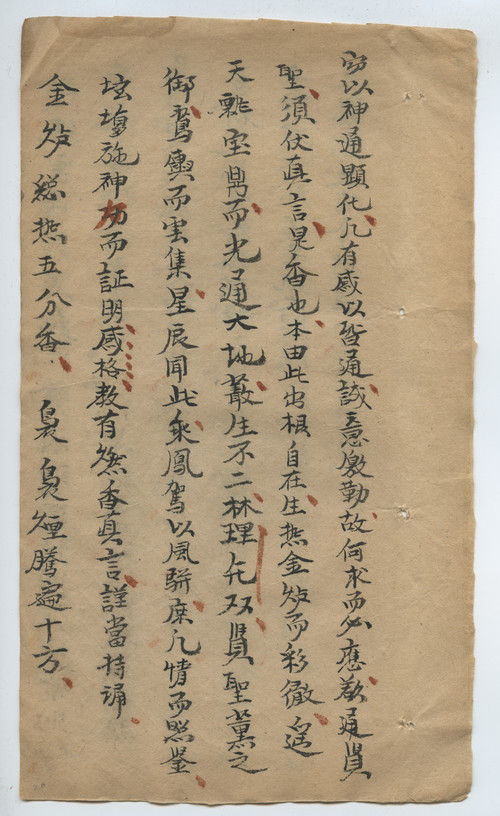 窃以神通顯化凡有感以皆通誠意慇勤故何求而必應欲通賢
聖須伏真言是香也本由此出根自在生热金炉而彩徹遥
天爇宝鼎而光通大地叢生不二林理无双賢聖薰之
御鸞輿而雲集星辰聞此乘鳳駕以風駢庶凡情而照鉴
坛塲施神力而証明感格教有燃香真言謹當持诵
金炉緫热五分香 裊裊烟騰遍十方